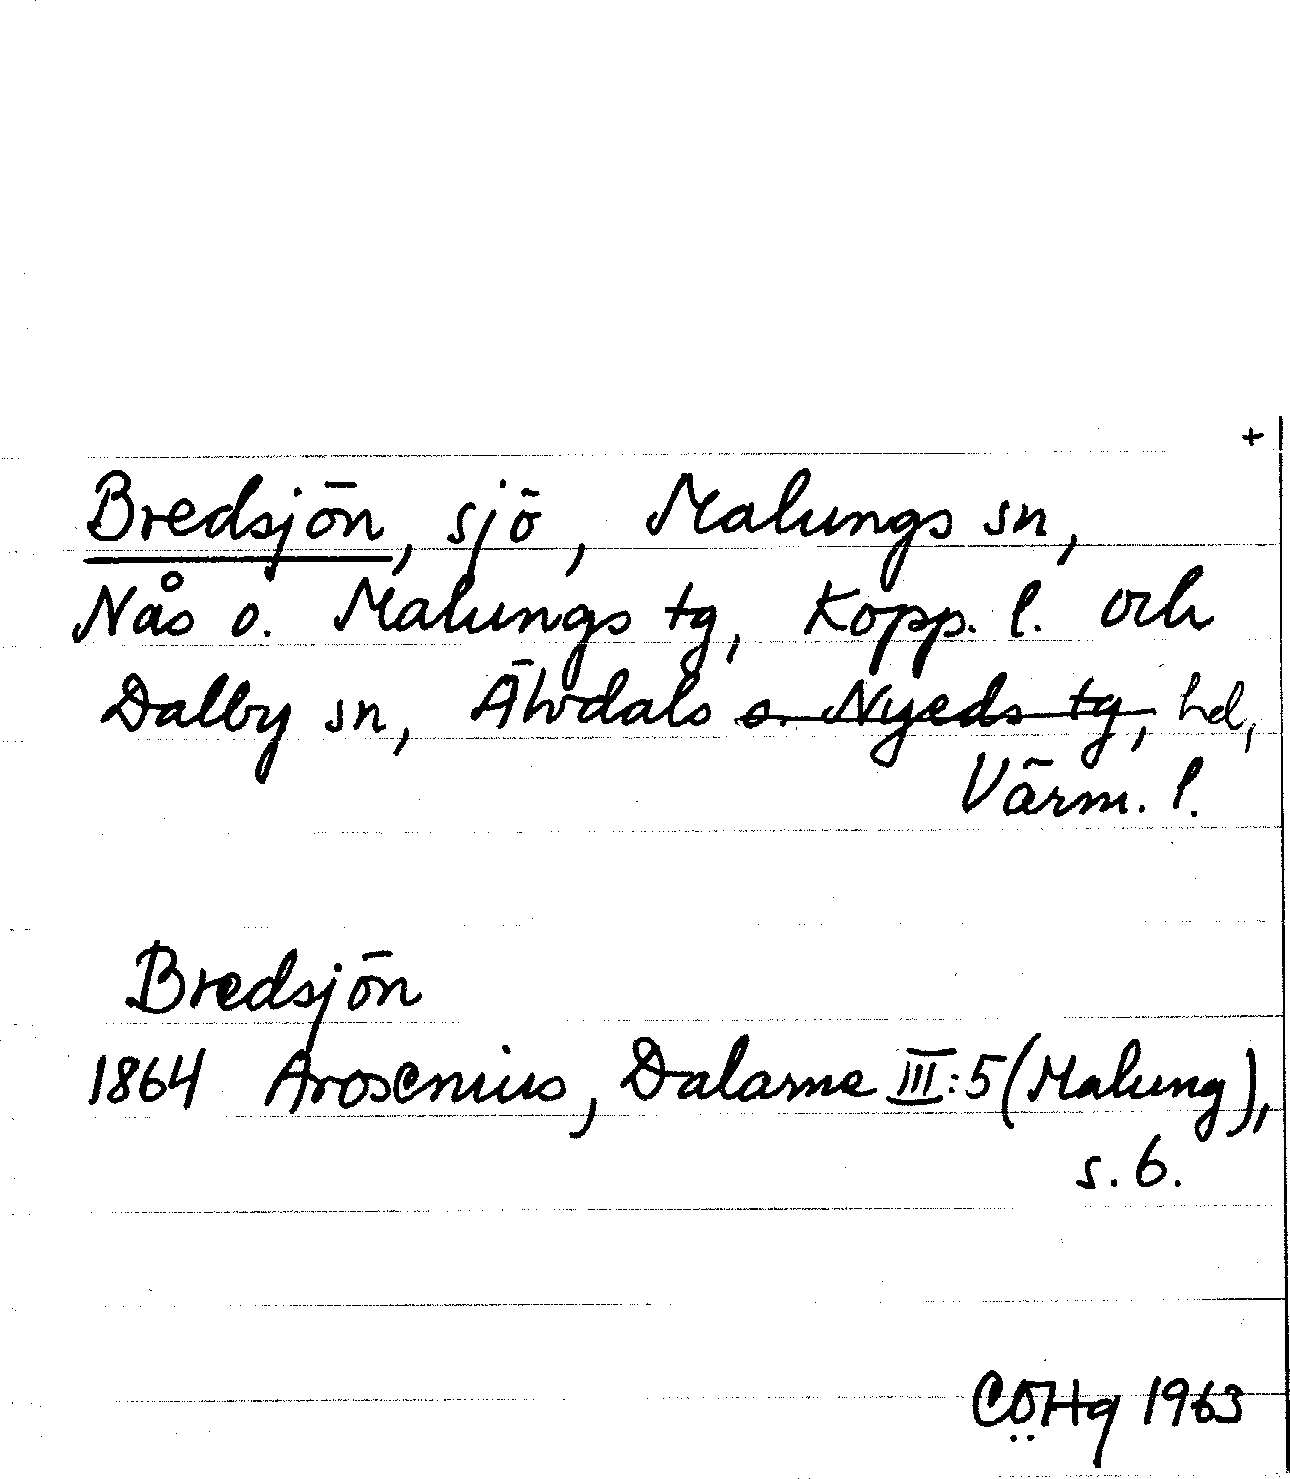 +
Bredsjön, sjö, Malungs sn,
Nås o. Malungs tg, Kopp. l. och
Dalby sn, Älvdals o. Nyeds tg, hd,
Värm. l.
Bredsjön
1864 Arosenius, Dalarne III:5 (Malung),
s. 6.
CÖHg 1963